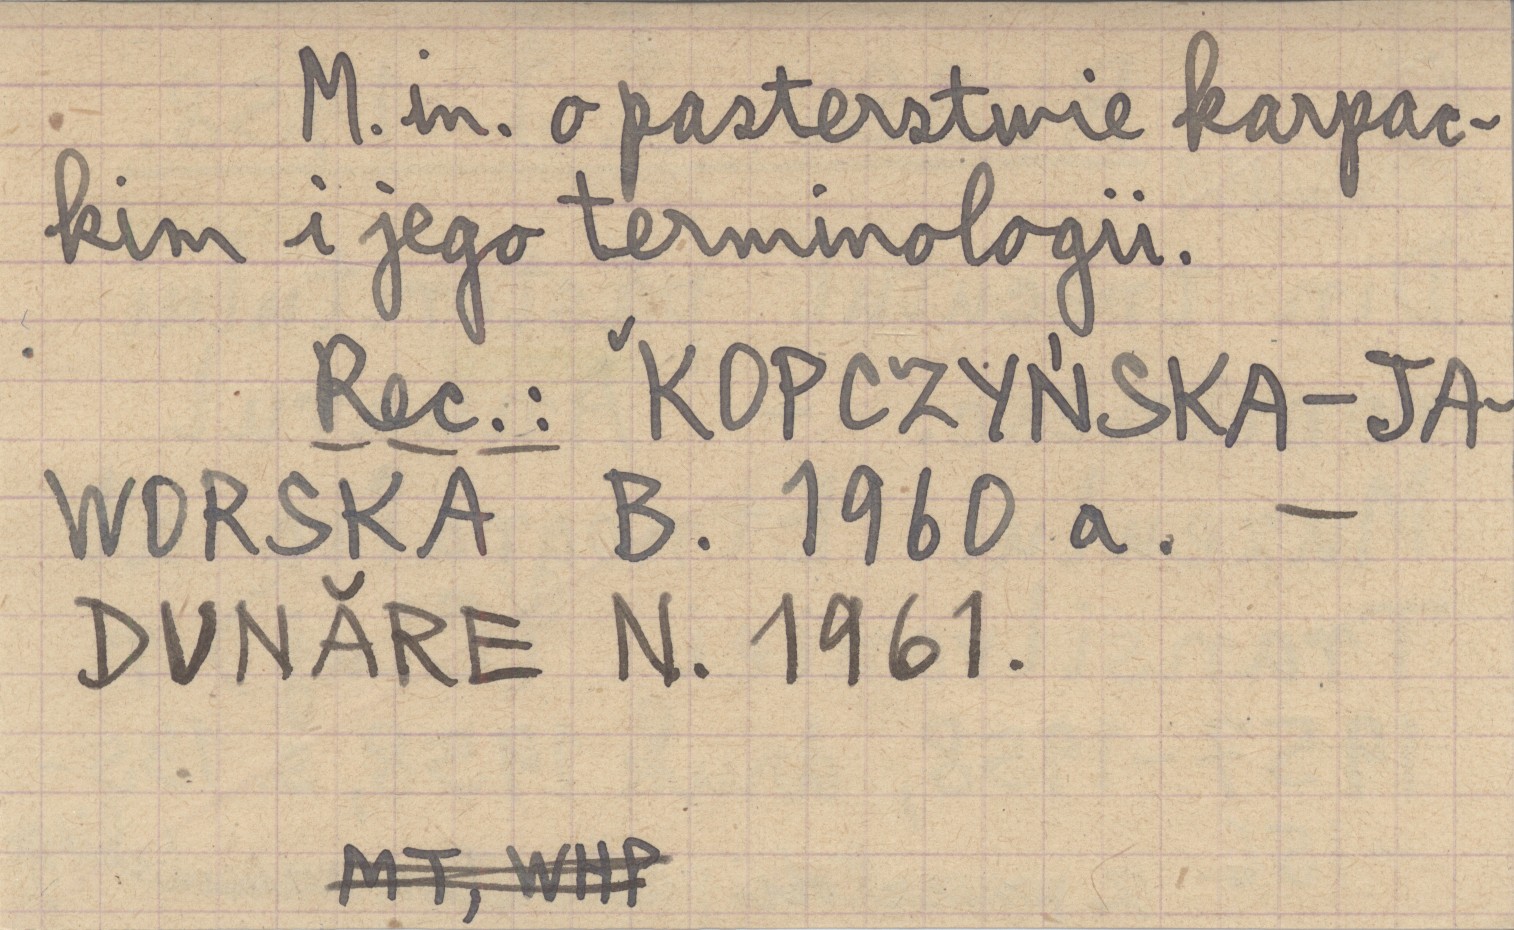 M. in. o pasterstwie karpac-
kim i jego terminologii.
Rec.: ˇKOPCZYŃSKA-JA-
WORSKA B. 1960 a. —
DUNĂRE N. 1961.
MT, WHP